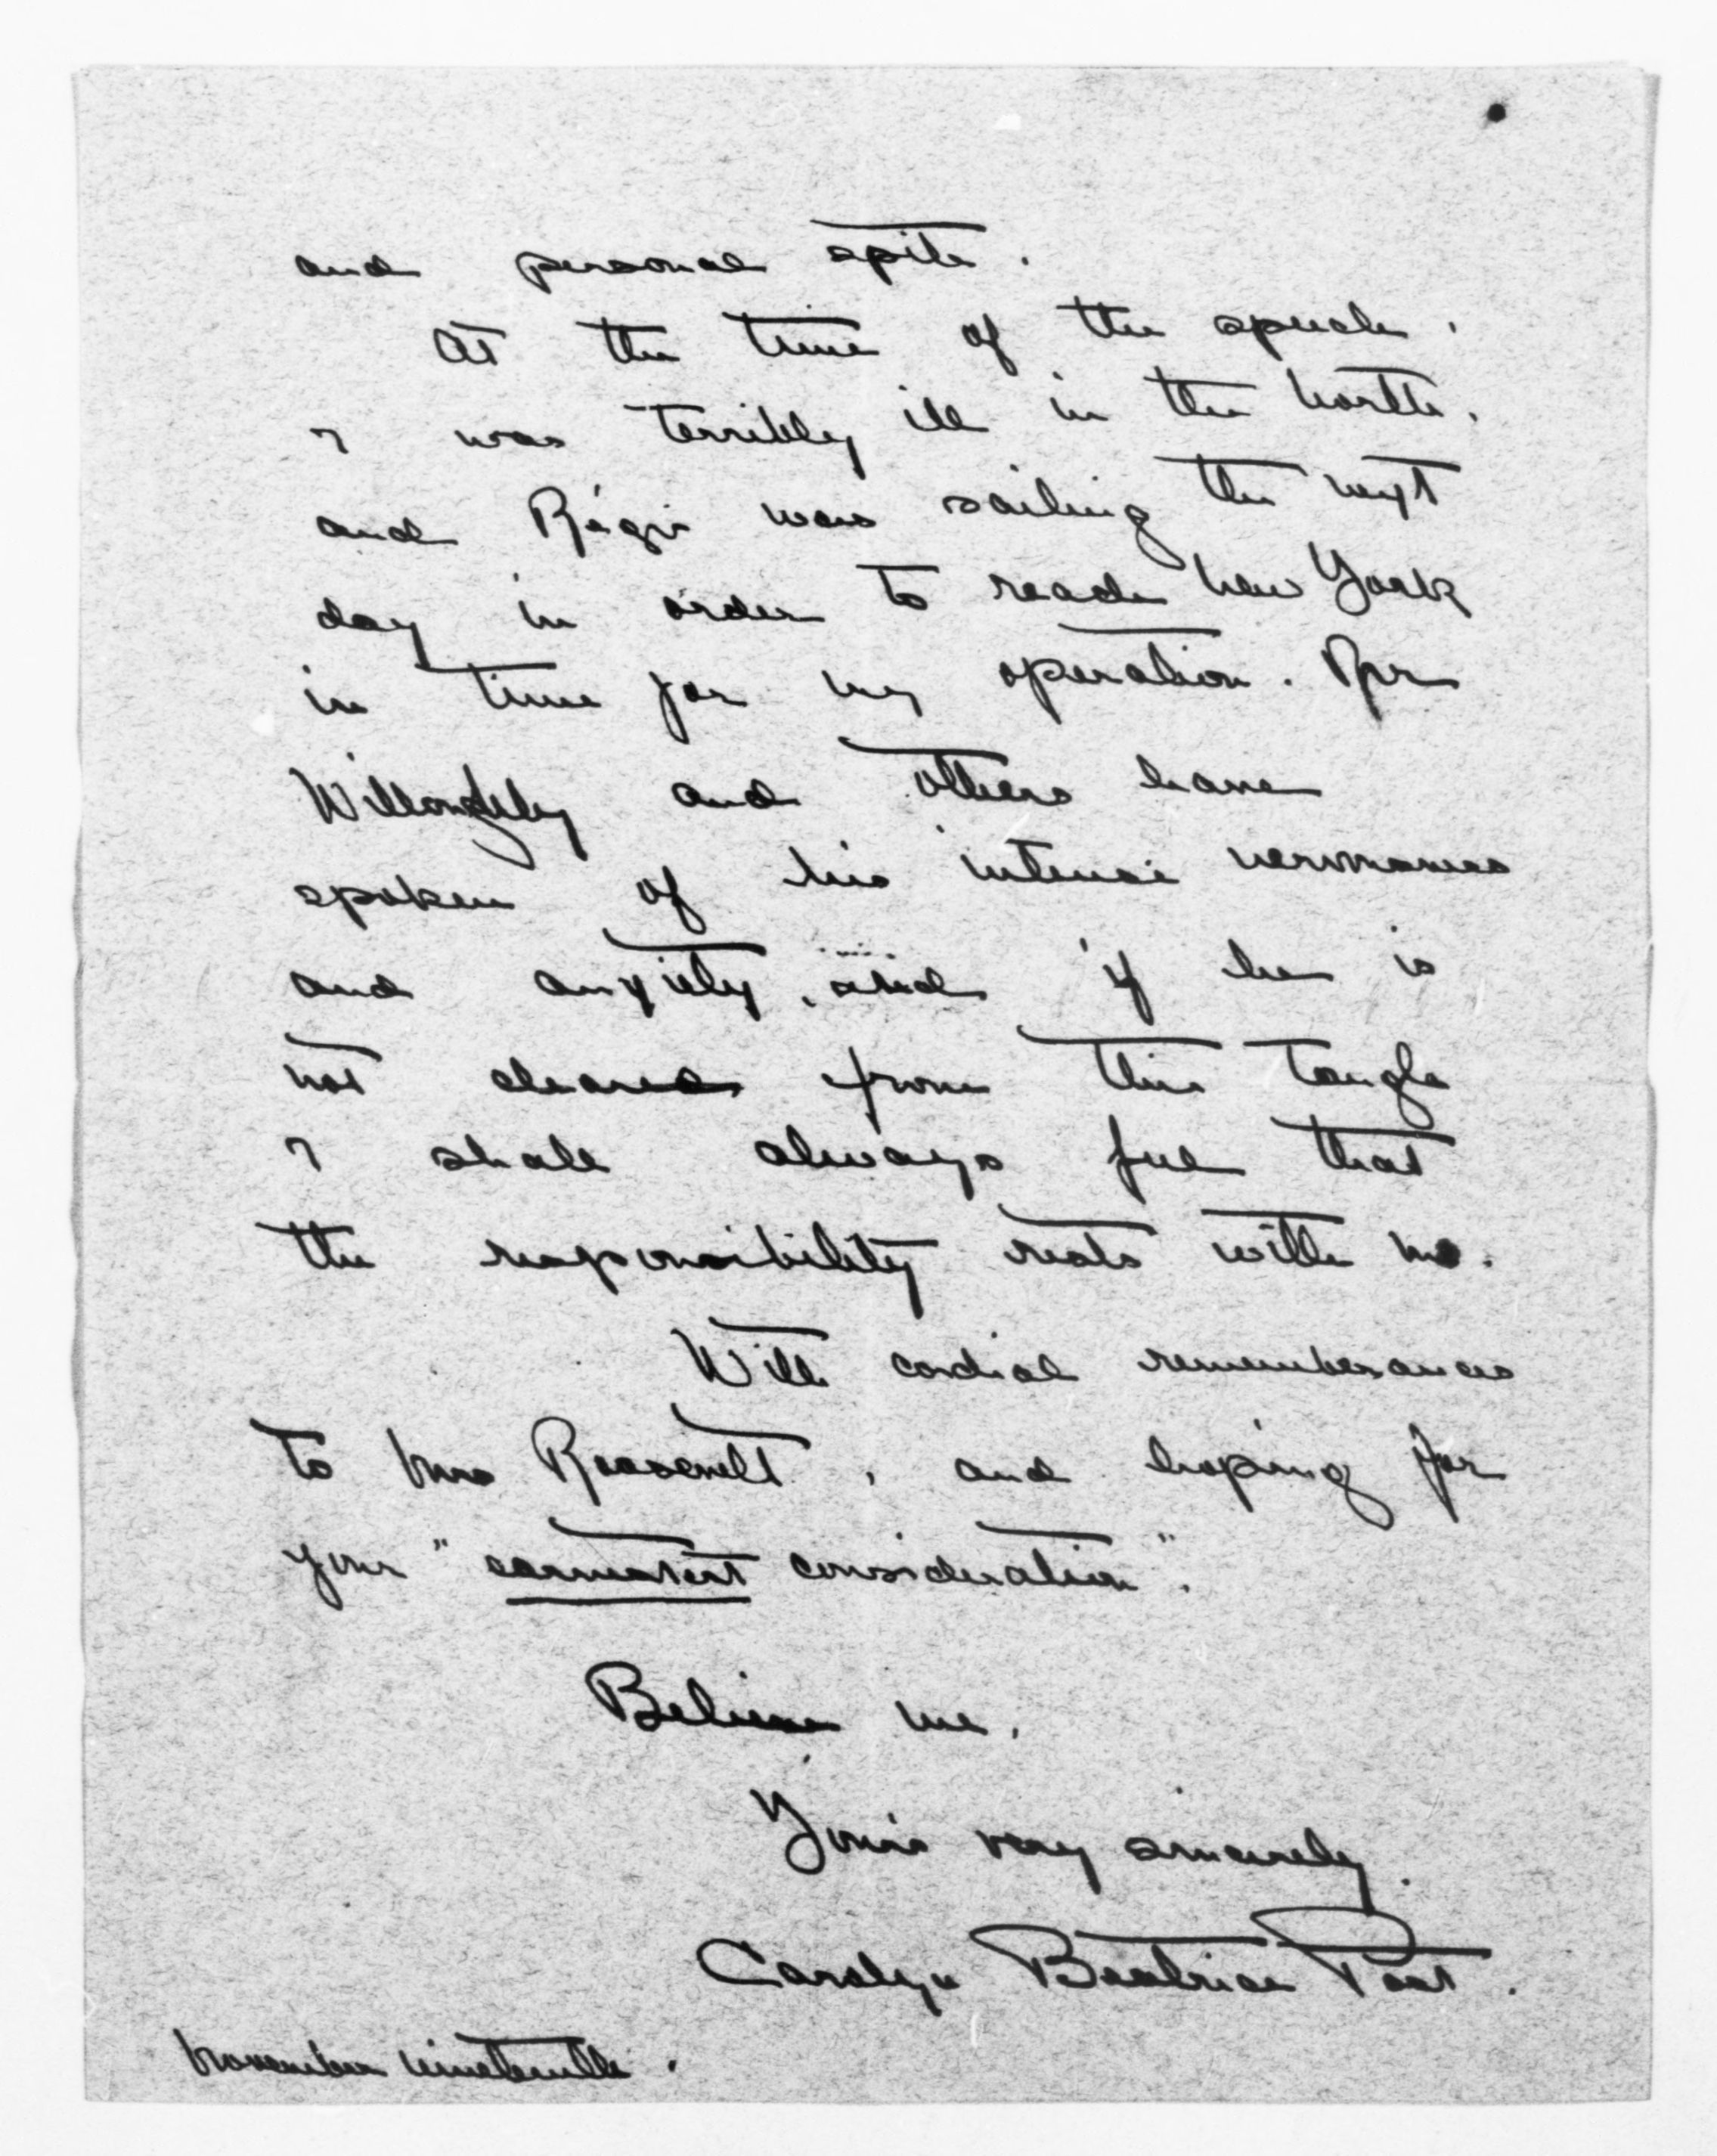 and personal spite.
At the time of the speech,
I was terribly ill in the North,
and Régis was sailing the next
day in order to reach New York
in time for my operation. Mr
Willoughby and others have
spoken of his intense nervousness
and anxiety, and if he is
not cleared from this tangle
I shall always feel that
the responsibility rests with me.
With cordial remembrances
to Mrs Roosevelt, and hoping for
your "earnestest consideration".
Believe me,
Yours very sincerely,
Carolyn Beatrice Post.
November nineteenth.